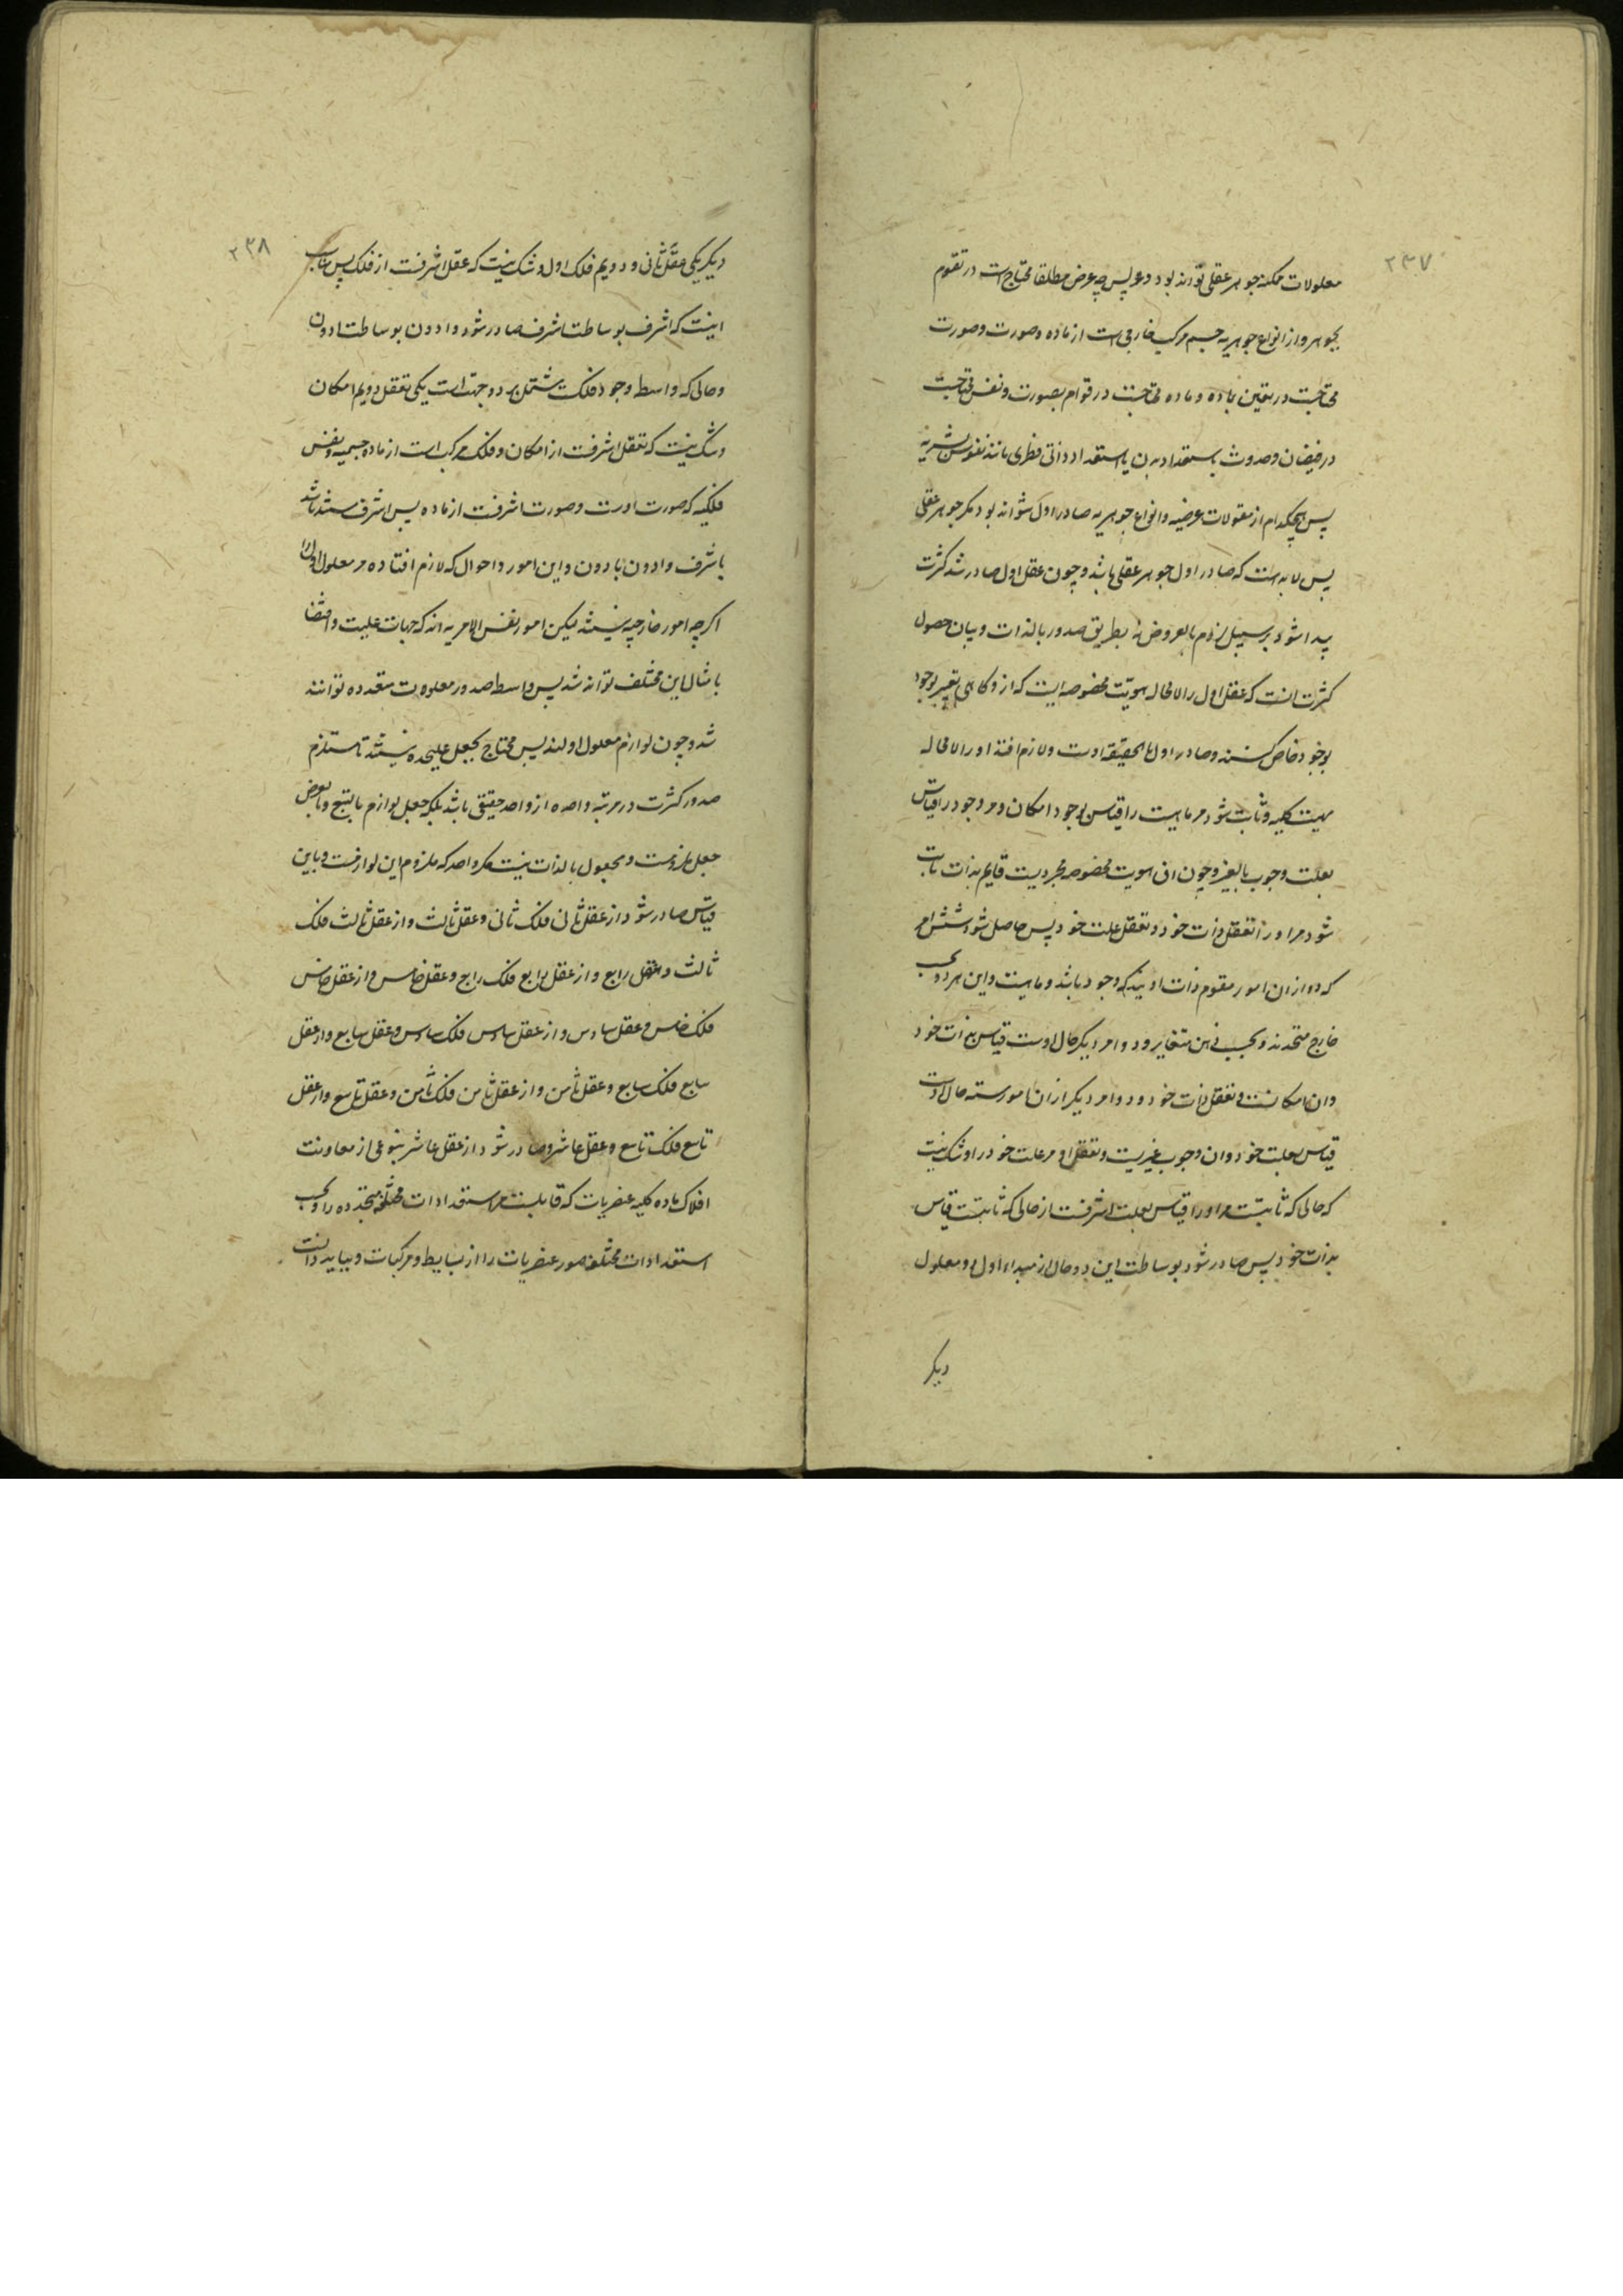 ۲۳۷
معلولات ممکنه جوهر عقلی تواند بود و عو پس چه عرض مطلقا محتاج است در تقوم
بجوهر و از انواع جوهریه جسم مرکب خارجی است از ماده و صورت و صورت
محتاجست در تعین بماده و ماده محتاجست در قوام بصورت و نفس محتاجست
در فیضان و حدوث باستعداد بدن یا استعداد ذاتی فطری مانند نفوس بشریه
پس هیچکدام از مقولات عرضیه و انواع جوهریه صادر اول نتواند بود مگر جوهر عقلی
پس لابد است که صادر اول جوهر عقلی باشد و چون عقل اول صادر شد کثرت
پیدا شود بر سبیل لزوم بالعروض نه بطریق صدور بالذات و بیان حصول
کثرت انست که عقل اول را لامحاله هویت مخصوصه ایست که از و کاهی تعبیر بوجود
بوجود خاص کنند و صادر اول بالحقیقه اوست و لازم افتد او را لامحاله
مهیت کلیه و ثابت شود مر ماهیت را قیاس بوجود امکان و مر وجود را قیاس
بعلت وجوب بالغیر و چون ان هویت مخصوصه مجردیست قایم بذات ثابت
شود مر او را تعقل ذات خود و تعقل علت خود پس حاصل شود شش امر
که دو از ان امور مقوم ذات اویند که وجود باشد و ماهیت و این هر دو بحسب
خارج متحدند و بحسب ذهن متغایر و دو امر دیگر حال اوست قیاس بذات خود
و ان امکانست و تعقل ذات خود و دو امر دیگر از ان امور سته حال اوست
قیاس بعلت خود و ان وجوب بغیریت و تعقل او مر علت خود را و شک نیست
که حالی که ثابتست مر او را قیاس بعلت اشرفست از حالی که ثابتست قیاس
بذات خود پس صادر شود بوساطت این دو حال از مبداء اول دو معلول
دیگر
۲۳۸
دیگر یکی عقل ثانی و دویم فلک اول و شک نیست که عقل اشرفست از فلک پس مناسب
اینست که اشرف بوساطت اشرف صادر شود و ادون بوساطت ادون
و حالی که واسطه وجود فلکست مشتمل بر دو جهت است یکی تعقل دویم امکان
و شک نیست که تعقل اشرفست از امکان و فلک مرکب است از ماده جسمیه و نفس
فلکیه که صورت اوست و صورت اشرفست از ماده پس اشرف مستند باشد
باشرف و ادون بادون و این امور و احوال که لازم افتاده مر معلول اول را
اگرچه امور خارجیه نیستند لیکن امور نفس الامریه اند که جهات علیت و اقتضا
بامثال این مختلف تواند شد پس واسطه صدور معلولات متعدده توانند
شد و چون لوازم معلول اولند پس محتاج بجعل علیحده نیستند تا مستلزم
صدور کثرت در مرتبه واحده از واحد حقیقی باشد بلکه جعل لوازم بالتبع و بالعرض
جعل ملزومست و مجعول بالذات نیست مگر واحد که ملزوم این لوازمست و باین
قیاس صادر شود از عقل ثانی فلک ثانی و عقل ثالث و از عقل ثالث فلک
ثالث و عقل رابع و از عقل رابع فلک رابع و عقل خامس و از عقل خامس
فلک خامس و عقل سادس و از عقل سادس فلک سادس و عقل سابع و از عقل
سابع فلک سابع و عقل ثامن و از عقل ثامن فلک ثامن و عقل تاسع و از عقل
تاسع فلک تاسع و عقل عاشر و صادر شود از عقل عاشر بنوعی از معاونت
افلاک ماده کلیه عنصریات که قابلست مر استعدادات مختلفه متجدده را و بحسب
استعدادات مختلفه صور عنصریات را از بسایط و مرکبات و بباید دانست